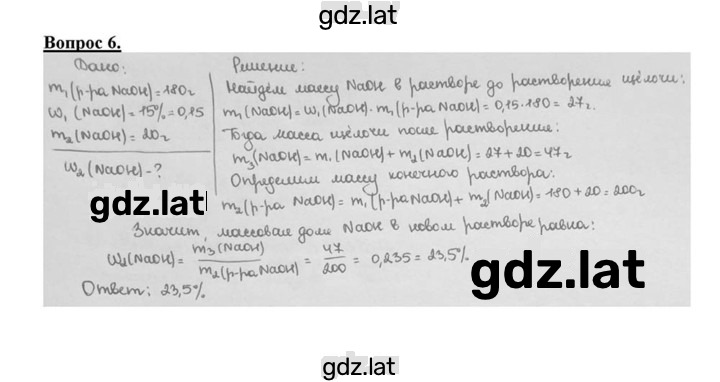 gdz.lat
Вопрос 6.
Дано:
m₁(р-ра NaOH)=180г
w₁(NaOH)=15%=0,15
m₂(NaOH)=20г
w₂(NaOH)-?
gdz.lat
Решение:
Найдём массу NaOH в растворе до растворения щёлочи:
m₁(NaOH)=w₁(NaOH)·m₁(р-ра NaOH)=0,15·180=27г.
Тогда масса щёлочи после растворения:
m₃(NaOH)=m₁(NaOH)+m₂(NaOH)=27+20=47г
Определим массу конечного раствора:
m₂(р-ра NaOH)=m₁(р-ра NaOH)+m₂(NaOH)=180+20=200г
Значит, массовая доля NaOH в новом растворе равна:
w₂(NaOH)= m₃(NaOH)/m₂(р-ра NaOH) = 47/200 = 0,235=23,5%
gdz.lat
Ответ: 23,5%.
gdz.lat